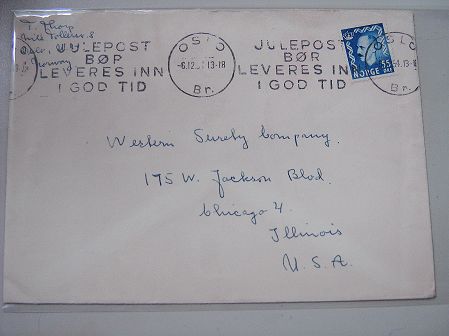 T. Thorp
Oslo,
Norway
JULEPOST
BØR
LEVERES INN
I GOD TID
OSLO
-6.12.54.13-18
Br.
JULEPOST
BØR
LEVERES INN
I GOD TID
NORGE 55
ØRE
OSLO
54.13-18
Br.
Western Surety Company.
175 W. Jackson Blvd.
Chicago 4.
Illinois
U.S.A.